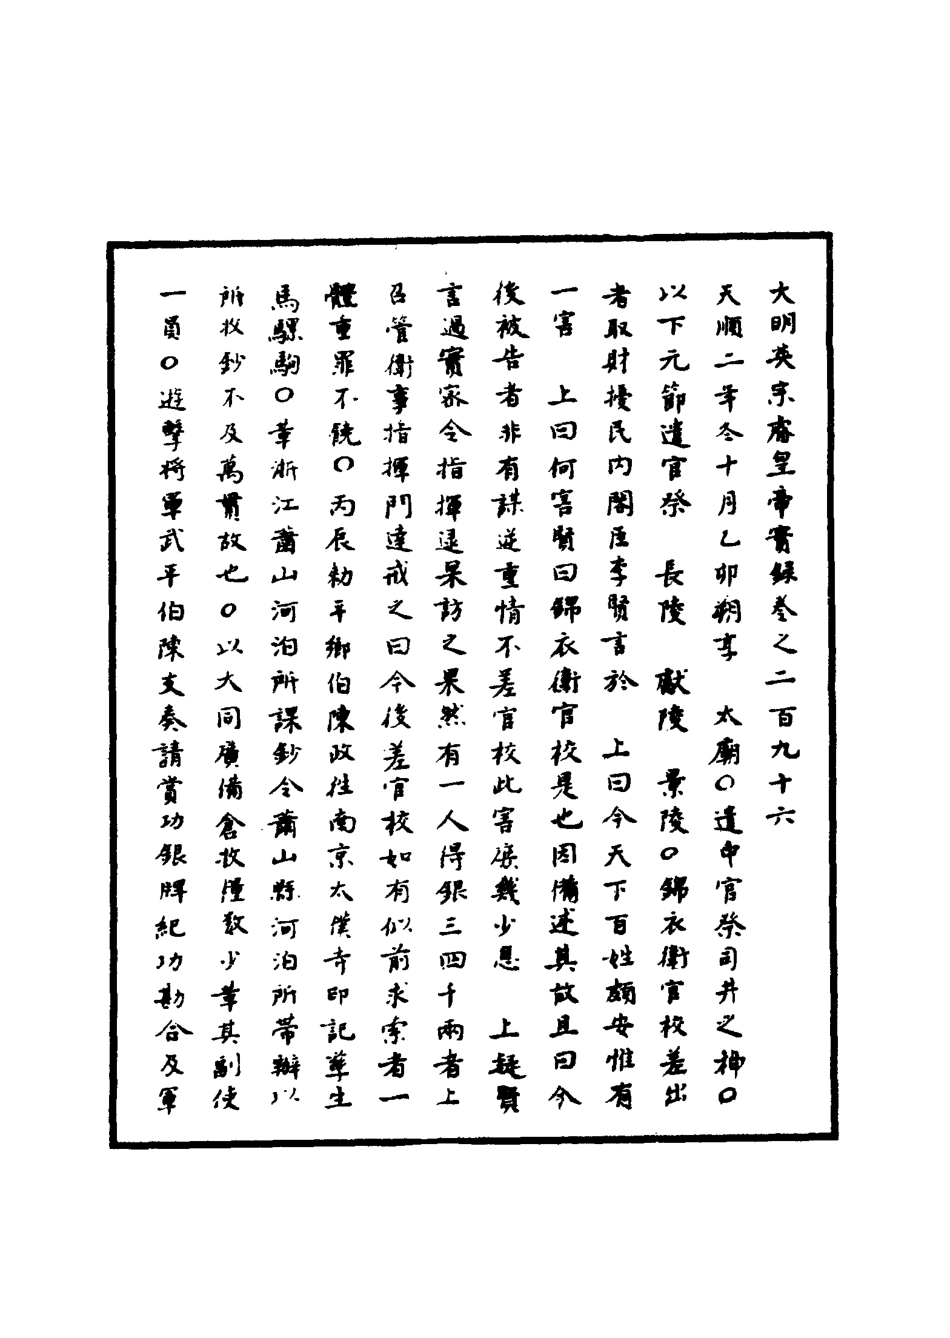 大明英宗睿皇帝實錄卷之二百九十六
天順二年冬十月乙卯朔享　太廟○遣中官祭司井之神○
以下元節遣官祭　長陵　獻陵　景陵○錦衣衛官校差出
者取財擾民內閣臣李賢言於　上曰今天下百姓頗安惟有
一害　上曰何害賢曰錦衣衛官校是也因備述其故且曰今
後被告者非有謀逆重情不差官校此害庶幾少息　上疑賢
言過實家令指揮逯杲訪之果然有一人得銀三四千兩者上
召管衛事指揮門達戒之曰今後差官校如有似前求索者一
體重罪不饒○丙辰勑平鄉伯陳政往南京太僕寺印記孳生
馬騾駒○革浙江蕭山河泊所課鈔令蕭山縣河泊所帶辦以
所收鈔不及萬貫故也○以大同廣備倉收糧數少革其副使
一員○遊擊將軍武平伯陳友奏請賞功銀牌紀功勘合及軍